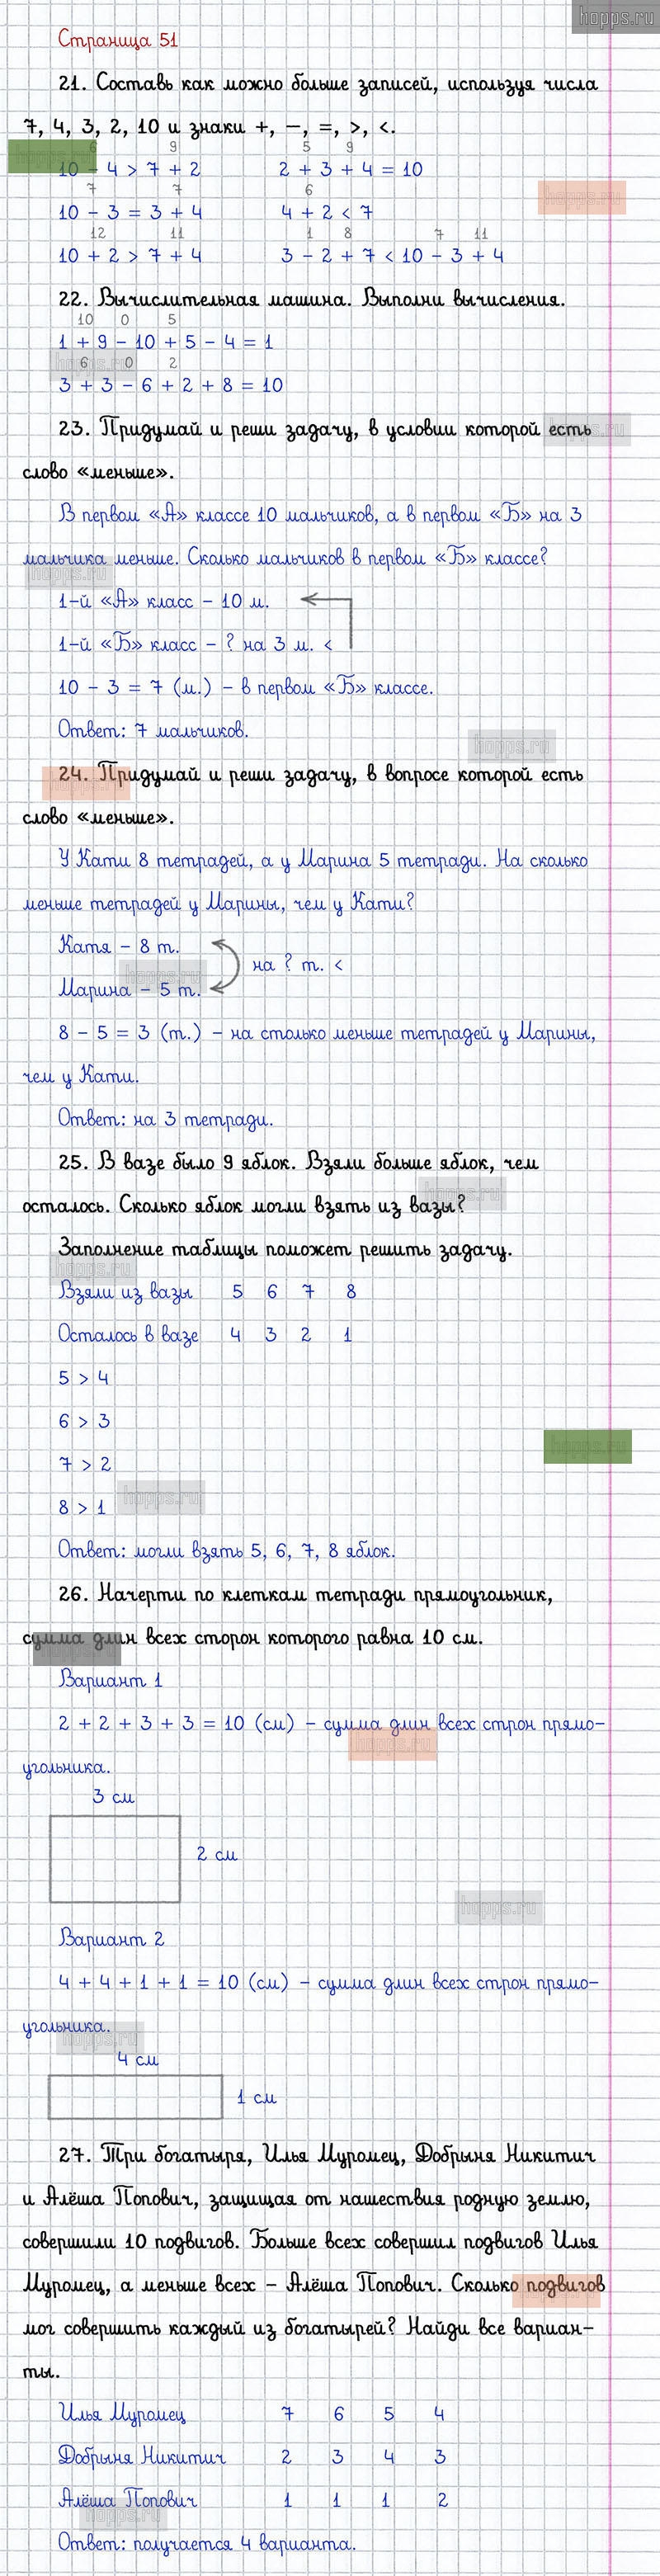 hopps.ru
Страница 51
21. Составь как можно больше записей, используя числа
7, 4, 3, 2, 10 и знаки +, −, =, >, <.
6 9 5 9
10 − 4 > 7 + 2 2 + 3 + 4 = 10
7 7 6
10 − 3 = 3 + 4 4 + 2 < 7
12 11 1 8 7 11
10 + 2 > 7 + 4 3 − 2 + 7 < 10 − 3 + 4
22. Вычислительная машина. Выполни вычисления.
10 0 5
1 + 9 − 10 + 5 − 4 = 1
6 0 2
3 + 3 − 6 + 2 + 8 = 10
23. Придумай и реши задачу, в условии которой есть
слово «меньше».
В первом «А» классе 10 мальчиков, а в первом «Б» на 3
мальчика меньше. Сколько мальчиков в первом «Б» классе?
1-й «А» класс − 10 м.
1-й «Б» класс − ? на 3 м. <
10 − 3 = 7 (м.) − в первом «Б» классе.
Ответ: 7 мальчиков.
24. Придумай и реши задачу, в вопросе которой есть
слово «меньше».
У Кати 8 тетрадей, а у Марина 5 тетради. На сколько
меньше тетрадей у Марины, чем у Кати?
Катя − 8 т.
на ? т. <
Марина − 5 т.
8 − 5 = 3 (т.) − на столько меньше тетрадей у Марины,
чем у Кати.
Ответ: на 3 тетради.
25. В вазе было 9 яблок. Взяли больше яблок, чем
осталось. Сколько яблок могли взять из вазы?
Заполнение таблицы поможет решить задачу.
Взяли из вазы 5 6 7 8
Осталось в вазе 4 3 2 1
5 > 4
6 > 3
7 > 2
8 > 1
Ответ: могли взять 5, 6, 7, 8 яблок.
26. Начерти по клеткам тетради прямоугольник,
сумма длин всех сторон которого равна 10 см.
Вариант 1
2 + 2 + 3 + 3 = 10 (см) − сумма длин всех строн прямо-
угольника.
3 см
2 см
Вариант 2
4 + 4 + 1 + 1 = 10 (см) − сумма длин всех строн прямо-
угольника.
4 см
1 см
27. Три богатыря, Илья Муромец, Добрыня Никитич
и Алёша Попович, защищая от нашествия родную землю,
совершили 10 подвигов. Больше всех совершил подвигов Илья
Муромец, а меньше всех − Алёша Попович. Сколько подвигов
мог совершить каждый из богатырей? Найди все вариан-
ты.
Илья Муромец 7 6 5 4
Добрыня Никитич 2 3 4 3
Алёша Попович 1 1 1 2
Ответ: получается 4 варианта.